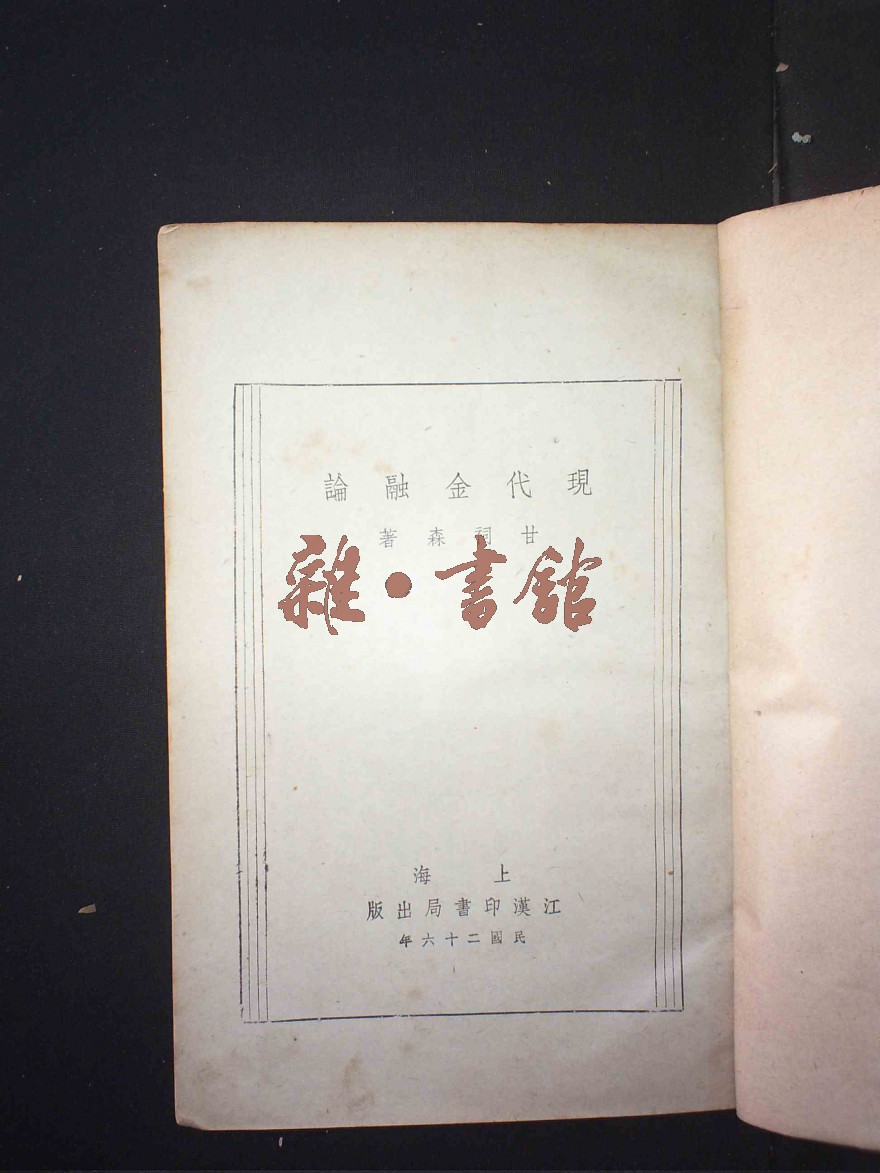 現代金融論
甘祠森著
雜·書館
上海
江漢印書局出版
民國二十六年